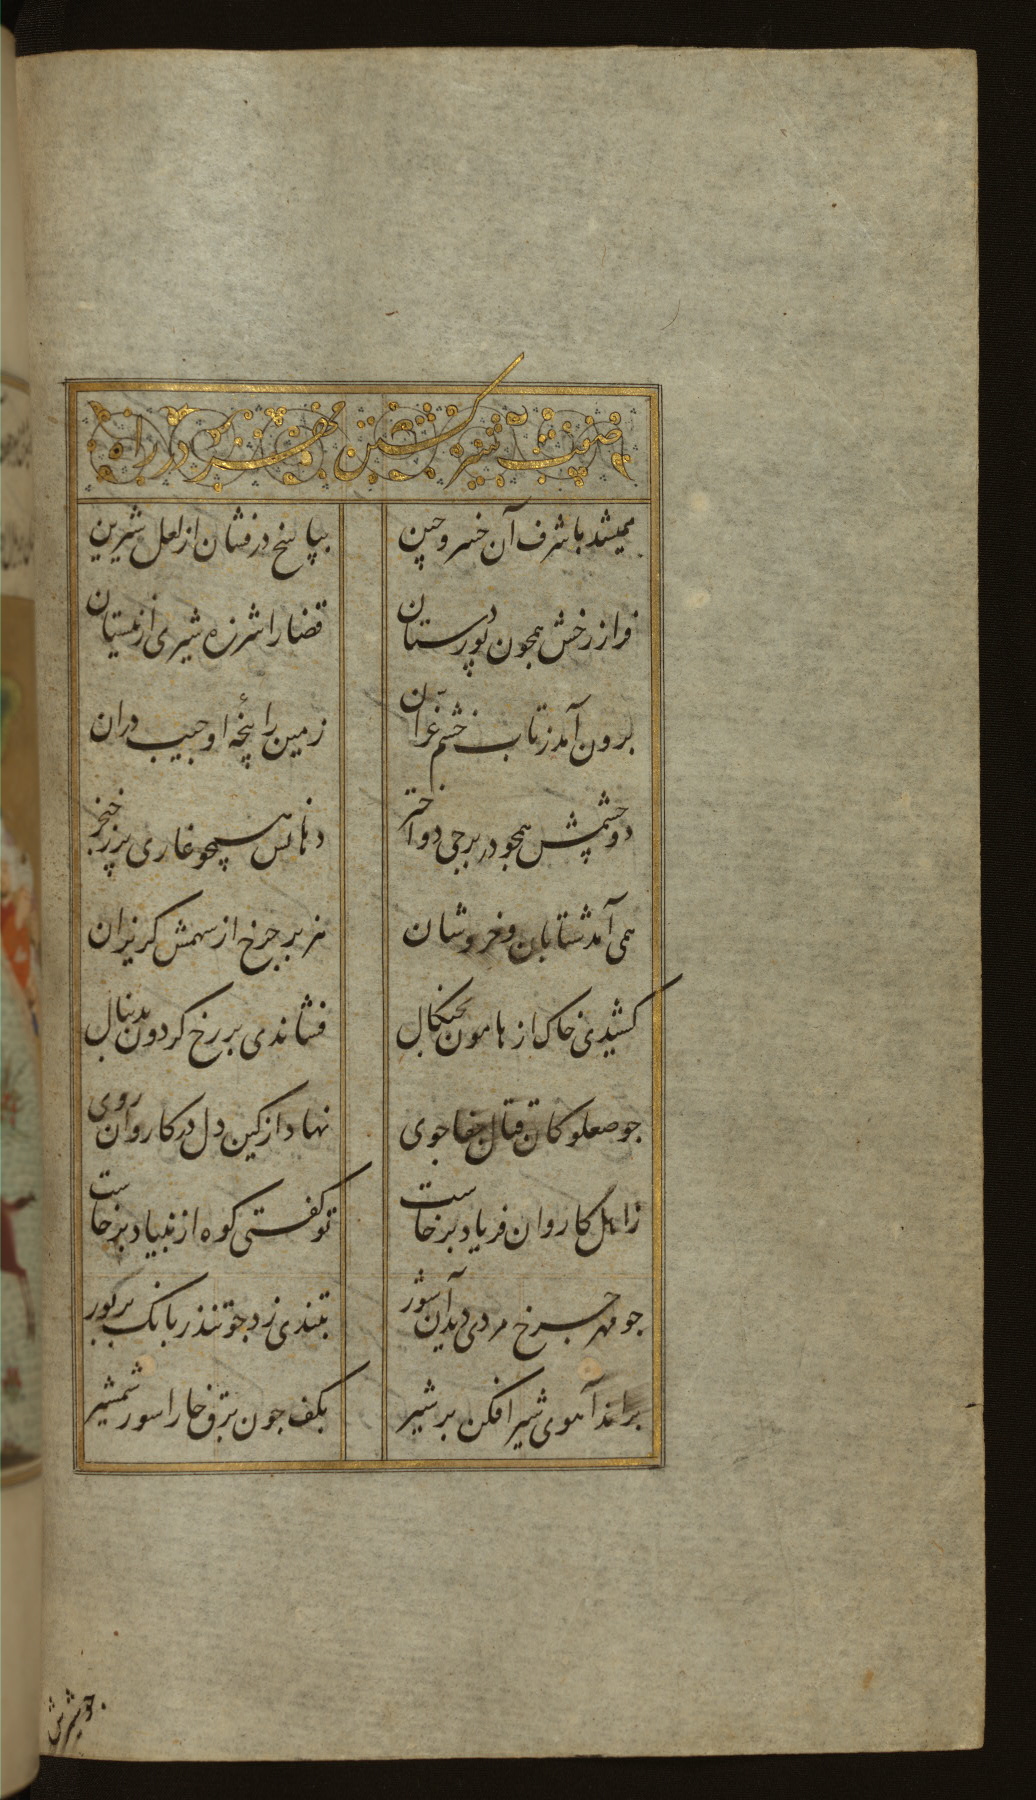 صفت آن شیر کشتن مهر در راه
همیشد با شرف آن خسرو چین بپاسخ درفشان از لعل شیرین
فراز رخش همچون پور دستان قضا را شرزه شیری از نیستان
برون آمد ز تاب خشم غران زمین را پنجه او جیب دران
دو چشمش همچو در برجی دو اختر دهانش همچو غاری پر ز خنجر
همی آمد شتابان و خروشان هزبر چرخ از سهمش کریزان
کشیدی خاک از هامون بچنکال فشاندی بر رخ کردون بدنبال
جو صعلوکان قتال جفاجوی نهاد از کین دل در کاروان روی
ز اهل کاروان فریاد برخاست تو کفتی کوه از بنیاد برخاست
جو مهر جرخ مردی دید آن شور بتندی زد جو تندر بانک بر بور
براند آهوی شیر افکن بر شیر بکف جون برق خارا سوز شمشیر
جو شیرش